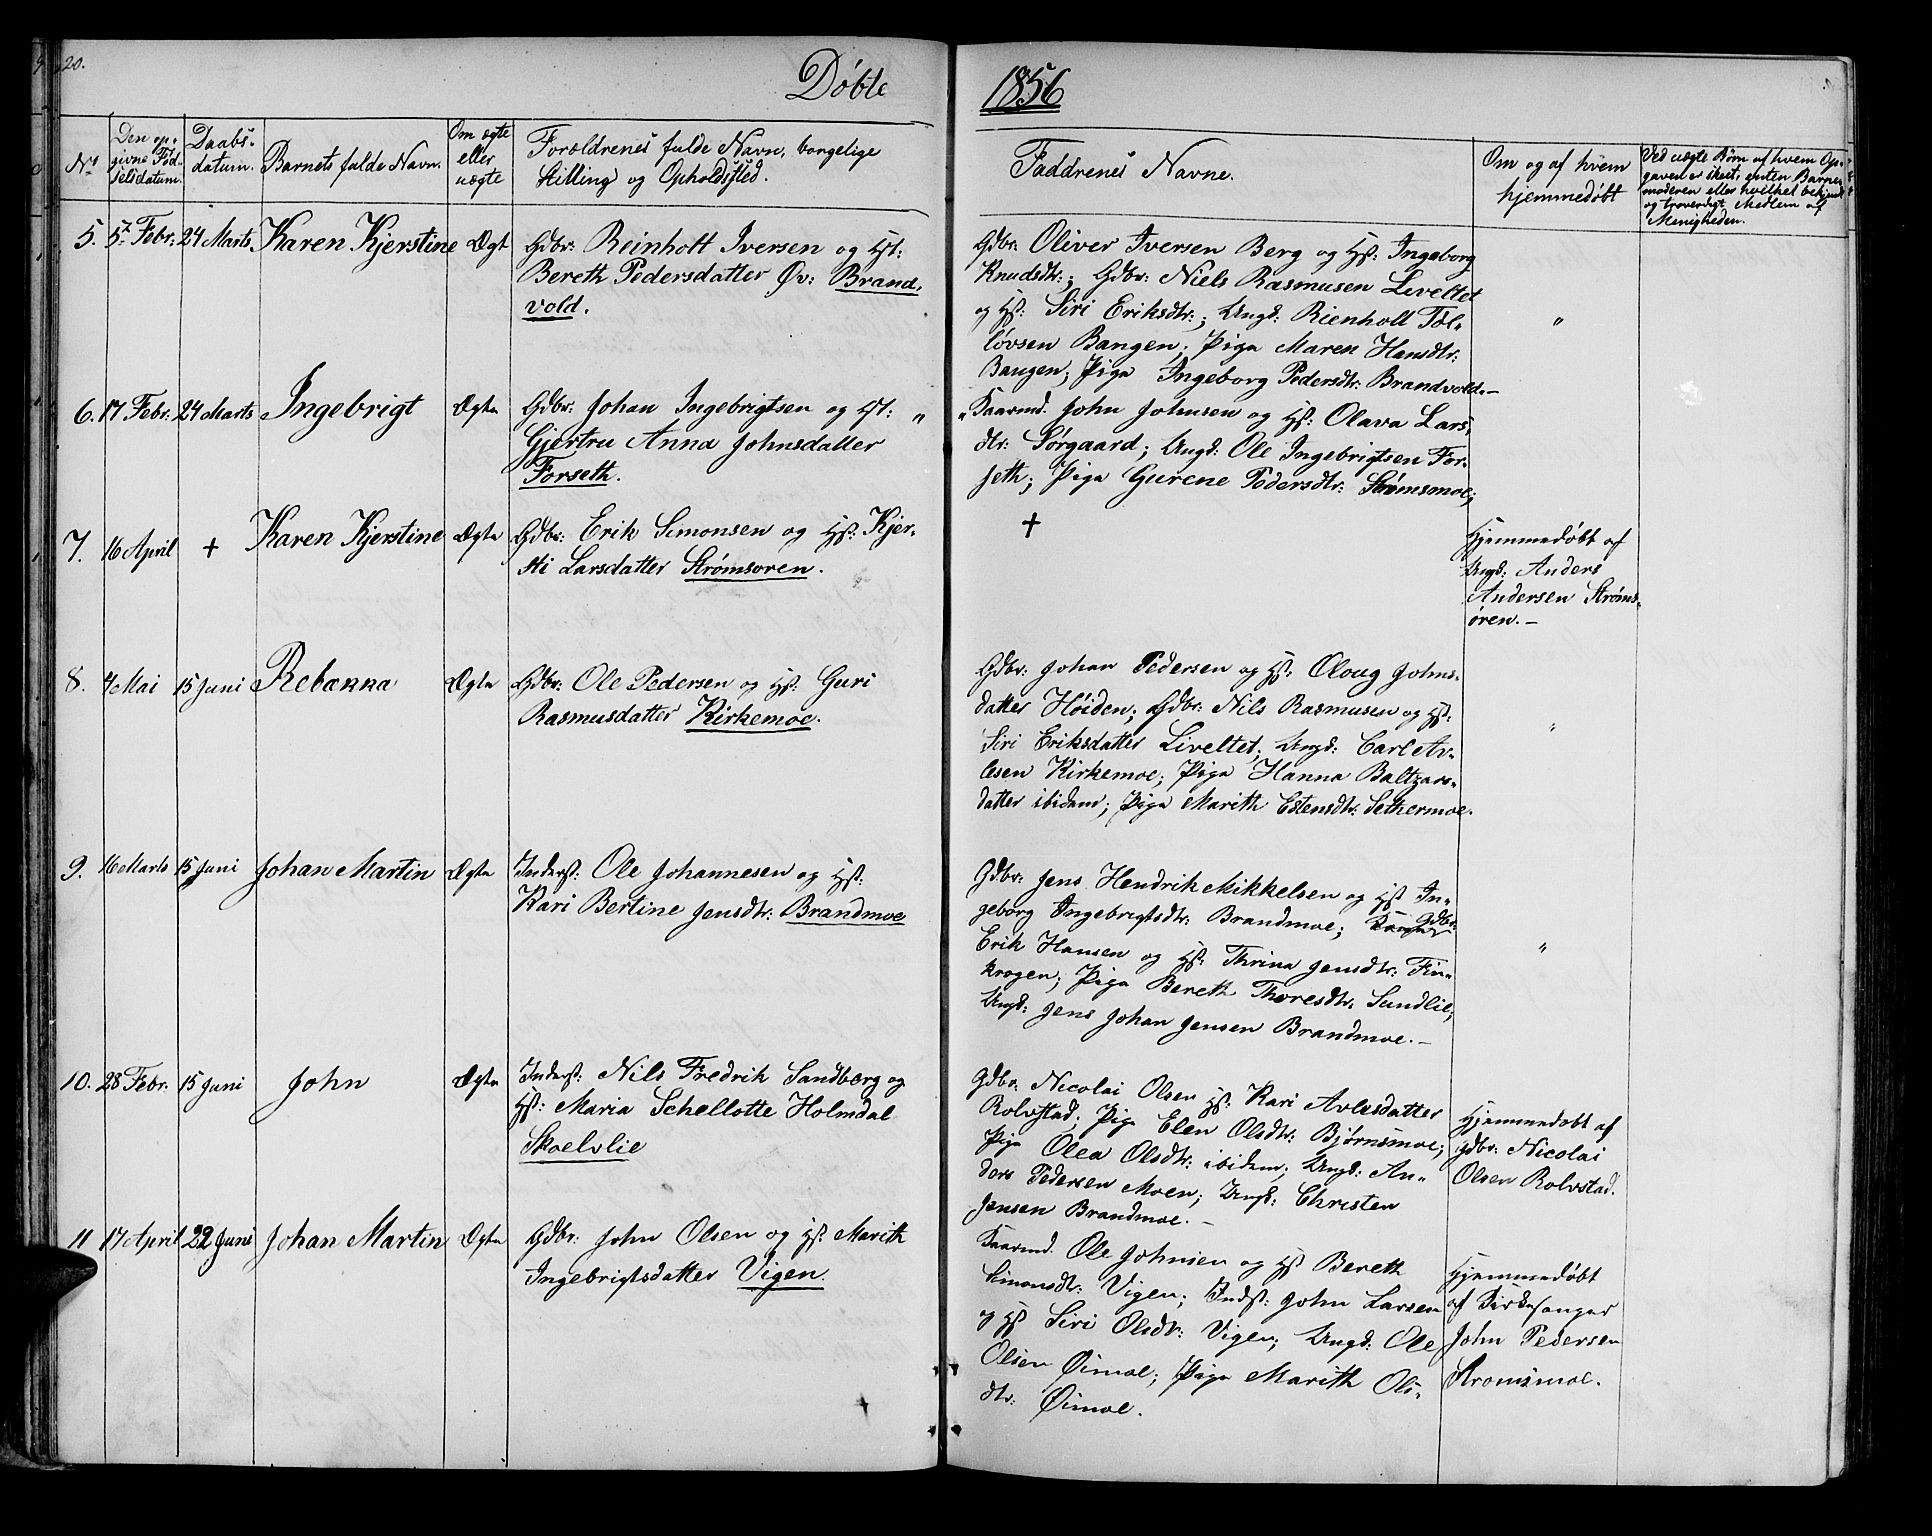 20.
Døbte
1856
No
Den op-
givne Fød-
selsdatum.
Daabs-
datum.
Barnets fulde Navn.
Om ægte
eller
uægte
Forældrenes fulde Navn, borgelige
Stilling og Opholdssted.
Faddrenes Navne.
Om og af hvem
hjemmedøbt
Ved uægte Børn af hvem Op-
gaven er skeet, enten Barne-
moderen eller hvilket bekjendt
og troverdigt Medlem af
Menigheden.
5. 5te Febr: 24 Marts Karen Kjerstine Ægt
Gdbr: Reinholt Iversen og Hst:
Bereth Pedersdatter Øv: Brand-
vold.
Gdbr: Oliver Iversen Berg og Hst: Ingeborg
Knudsdtr:; Gdbr: Niels Rasmusen Liveltet
og Hst: Siri Eriksdtr:; Ungd: Rienholt Tol-
løvsen Bangen; Piga Maren Hansdtr:
Bangen; Piga Ingeborg Pedersdtr: Brandvold.-
"
6. 17 Febr: 24 Marts Ingebrigt Ægte
Gdbr: Johan Ingebrigtsen og Hst: "
Gjertru Anna Johnsdatter
Forseth.
" Kaarmd. John Johnsen og Hst: Olava Lars-
dtr: Sørgaard; Ungd: Ole Ingebrigtsen For-
seth; Piga Gurene Pedersdtr: Strømsmoe;
7. 16 April + Karen Kjerstine Ægte
Gdbr: Erik Simonsen og Hst: Kjer-
sti Larsdatter Strømsøren.
+
Hjemmedøbt af
Ungd: Anders
Andersen Strøms-
øren.-
8. 4 Mai 15 Juni Rebækka Ægte
Gdbr: Ole Pedersen og Hst: Guri
Rasmusdatter Kirkemoe.
Gdbr: Johan Pedersen og Hst: Oloug Johns-
datter Høiden; Gdbr: Nils Rasmusen og Hst:
Siri Eriksdatter Liveltet; Ungd: Carl Av-
lesen Kirkemoe; Piga Hanna Baltzars-
datter ibidem; Piga Marith Estensdtr: Sethermoe.
"
9. 16 Marts 15 Juni Johan Martin Ægte
Inderst: Ole Johannesen og Hst:
Kari Bertine Jensdtr: Brandmoe
Gdbr: Jens Hendrik Mikkelsen og Hst In-
geborg Ingebrigtsdtr: Brandmoe; Gdbr:
Erik Hansen og Hst: Thrina Jensdtr: Fin-
krogen; Piga Bereth Thoresdtr: Sundlie;
Ungd: Jens Johan Jensen Brandmoe.-
"
10. 28 Febr. 15 Juni John Ægte
Inderst: Nils Fredrik Sandberg og
Hst: Maria Schellotte Holmdal
Skoelvlie
Gdbr: Nicolai Olsen Hst: Kari Avlesdatter
Rolvstad; Piga Elen Olsdtr: Bjørnsmoe;
Piga Olea Olsdtr: ibidem; Ungd: An-
ders Pedersen Moen; Ungd: Christen
Jensen Brandmoe.-
Hjemmedøbt af
Gdbr: Nicolai
Olsen Rolvstad.
11 17 April 22 Juni Johan Martin Ægte
Gdbr: John Olsen og Hst: Marith
Ingebrigtsdatter Vigen.
Kaarmd. Ole Johnsen og Hst Bereth
Simonsdtr: Vigen; Indst: John Larsen
og Hst Siri Olsdtr: Vigen; Ungd: Ole
Olsen Øimoe; Piga Marith Ols-
dtr: Øimoe.
Hjemmedøbt
af Kirkesanger
John Pedersen
Stromsmoe.